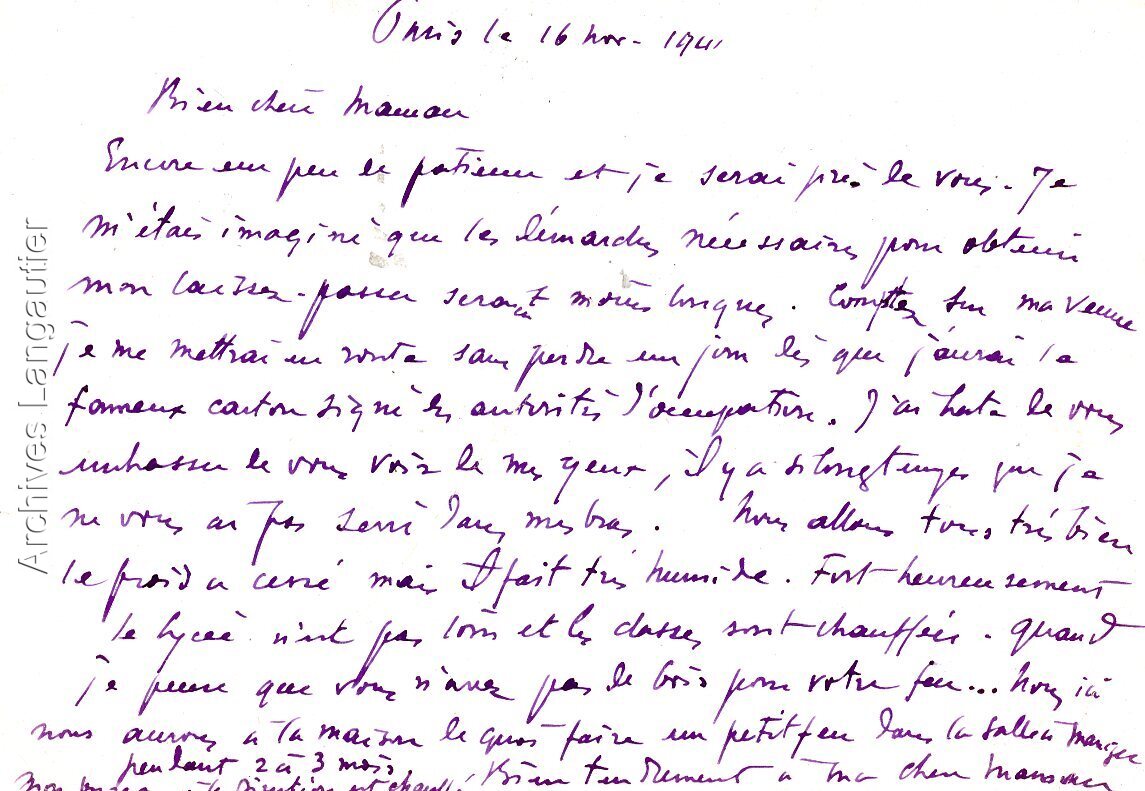 Paris le 16 nov. 1941
Bien chère Maman
Encore un peu de patience et je serai près de vous. Je
m'étais imaginé que les démarches nécessaires pour obtenir
mon laissez-passer seraient moins longues. Comptez sur ma venue
je me mettrai en route sans perdre un jour dès que j'aurai le
fameux carton signé des autorités d'occupation. J'ai hâte de vous
embrasser de vous voir de mes yeux, il y a si longtemps que je
ne vous ai pas serré dans mes bras. Nous allons tous très bien
le froid a cessé mais il fait très humide. Fort heureusement
le lycée n'est pas loin et les classes sont chauffées. Quand
je pense que vous n'avez pas de bois pour votre feu... Nous ici
nous aurons à la maison de quoi faire un petit feu dans la salle à manger
pendant 2 à 3 mois
Mon est Bien tendrement à ma chère Maman
Archives Langautier